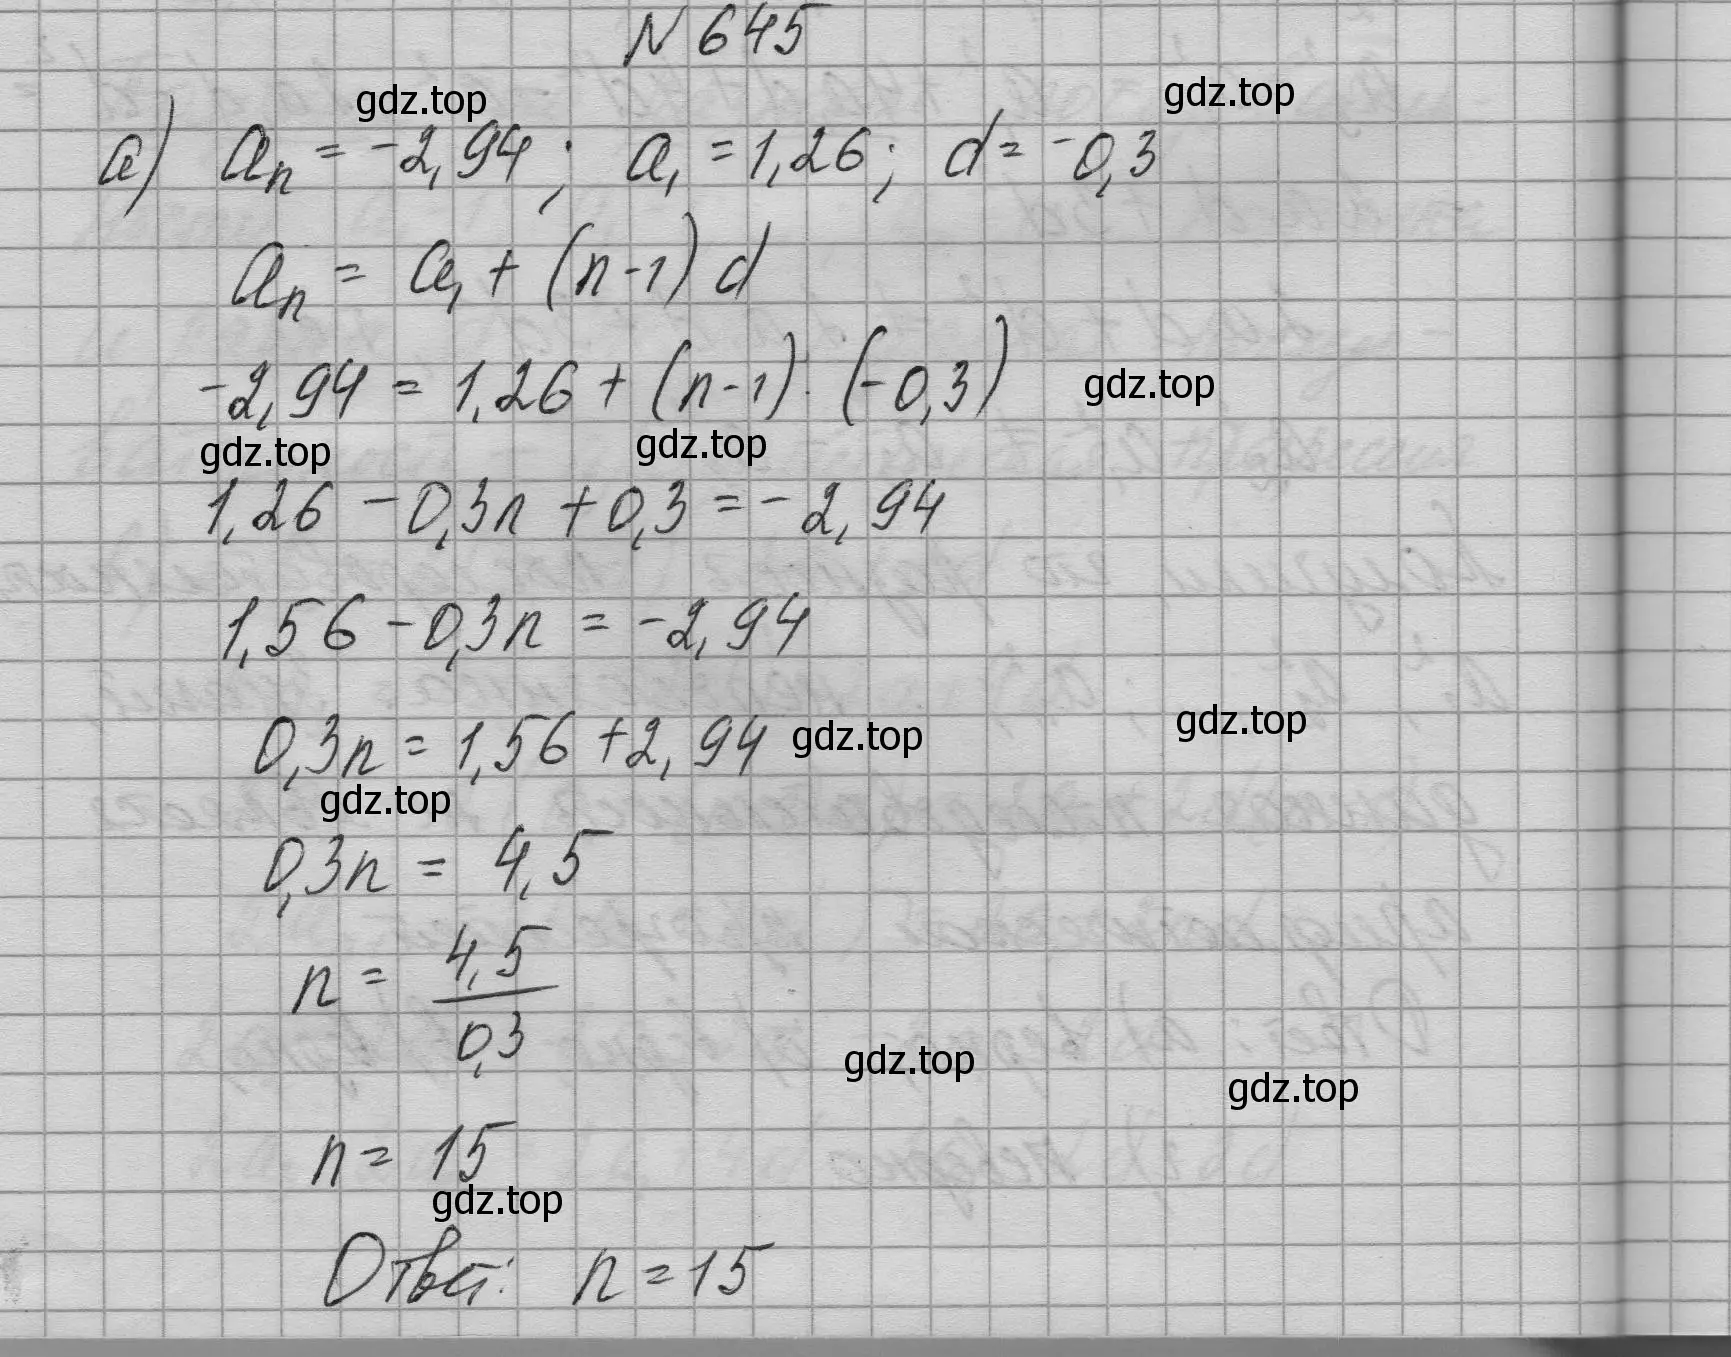 N 645
gdz.top gdz.top
а) aₙ = -2,94; a₁ = 1,26; d = -0,3
aₙ = a₁ + (n-1) d
-2,94 = 1,26 + (n-1) · (-0,3)
gdz.top
gdz.top gdz.top
1,26 - 0,3n + 0,3 = -2,94
1,56 - 0,3n = -2,94
0,3n = 1,56 + 2,94
gdz.top gdz.top
gdz.top
0,3n = 4,5
n = 4,5/0,3
gdz.top gdz.top
n = 15
gdz.top
Ответ: n = 15